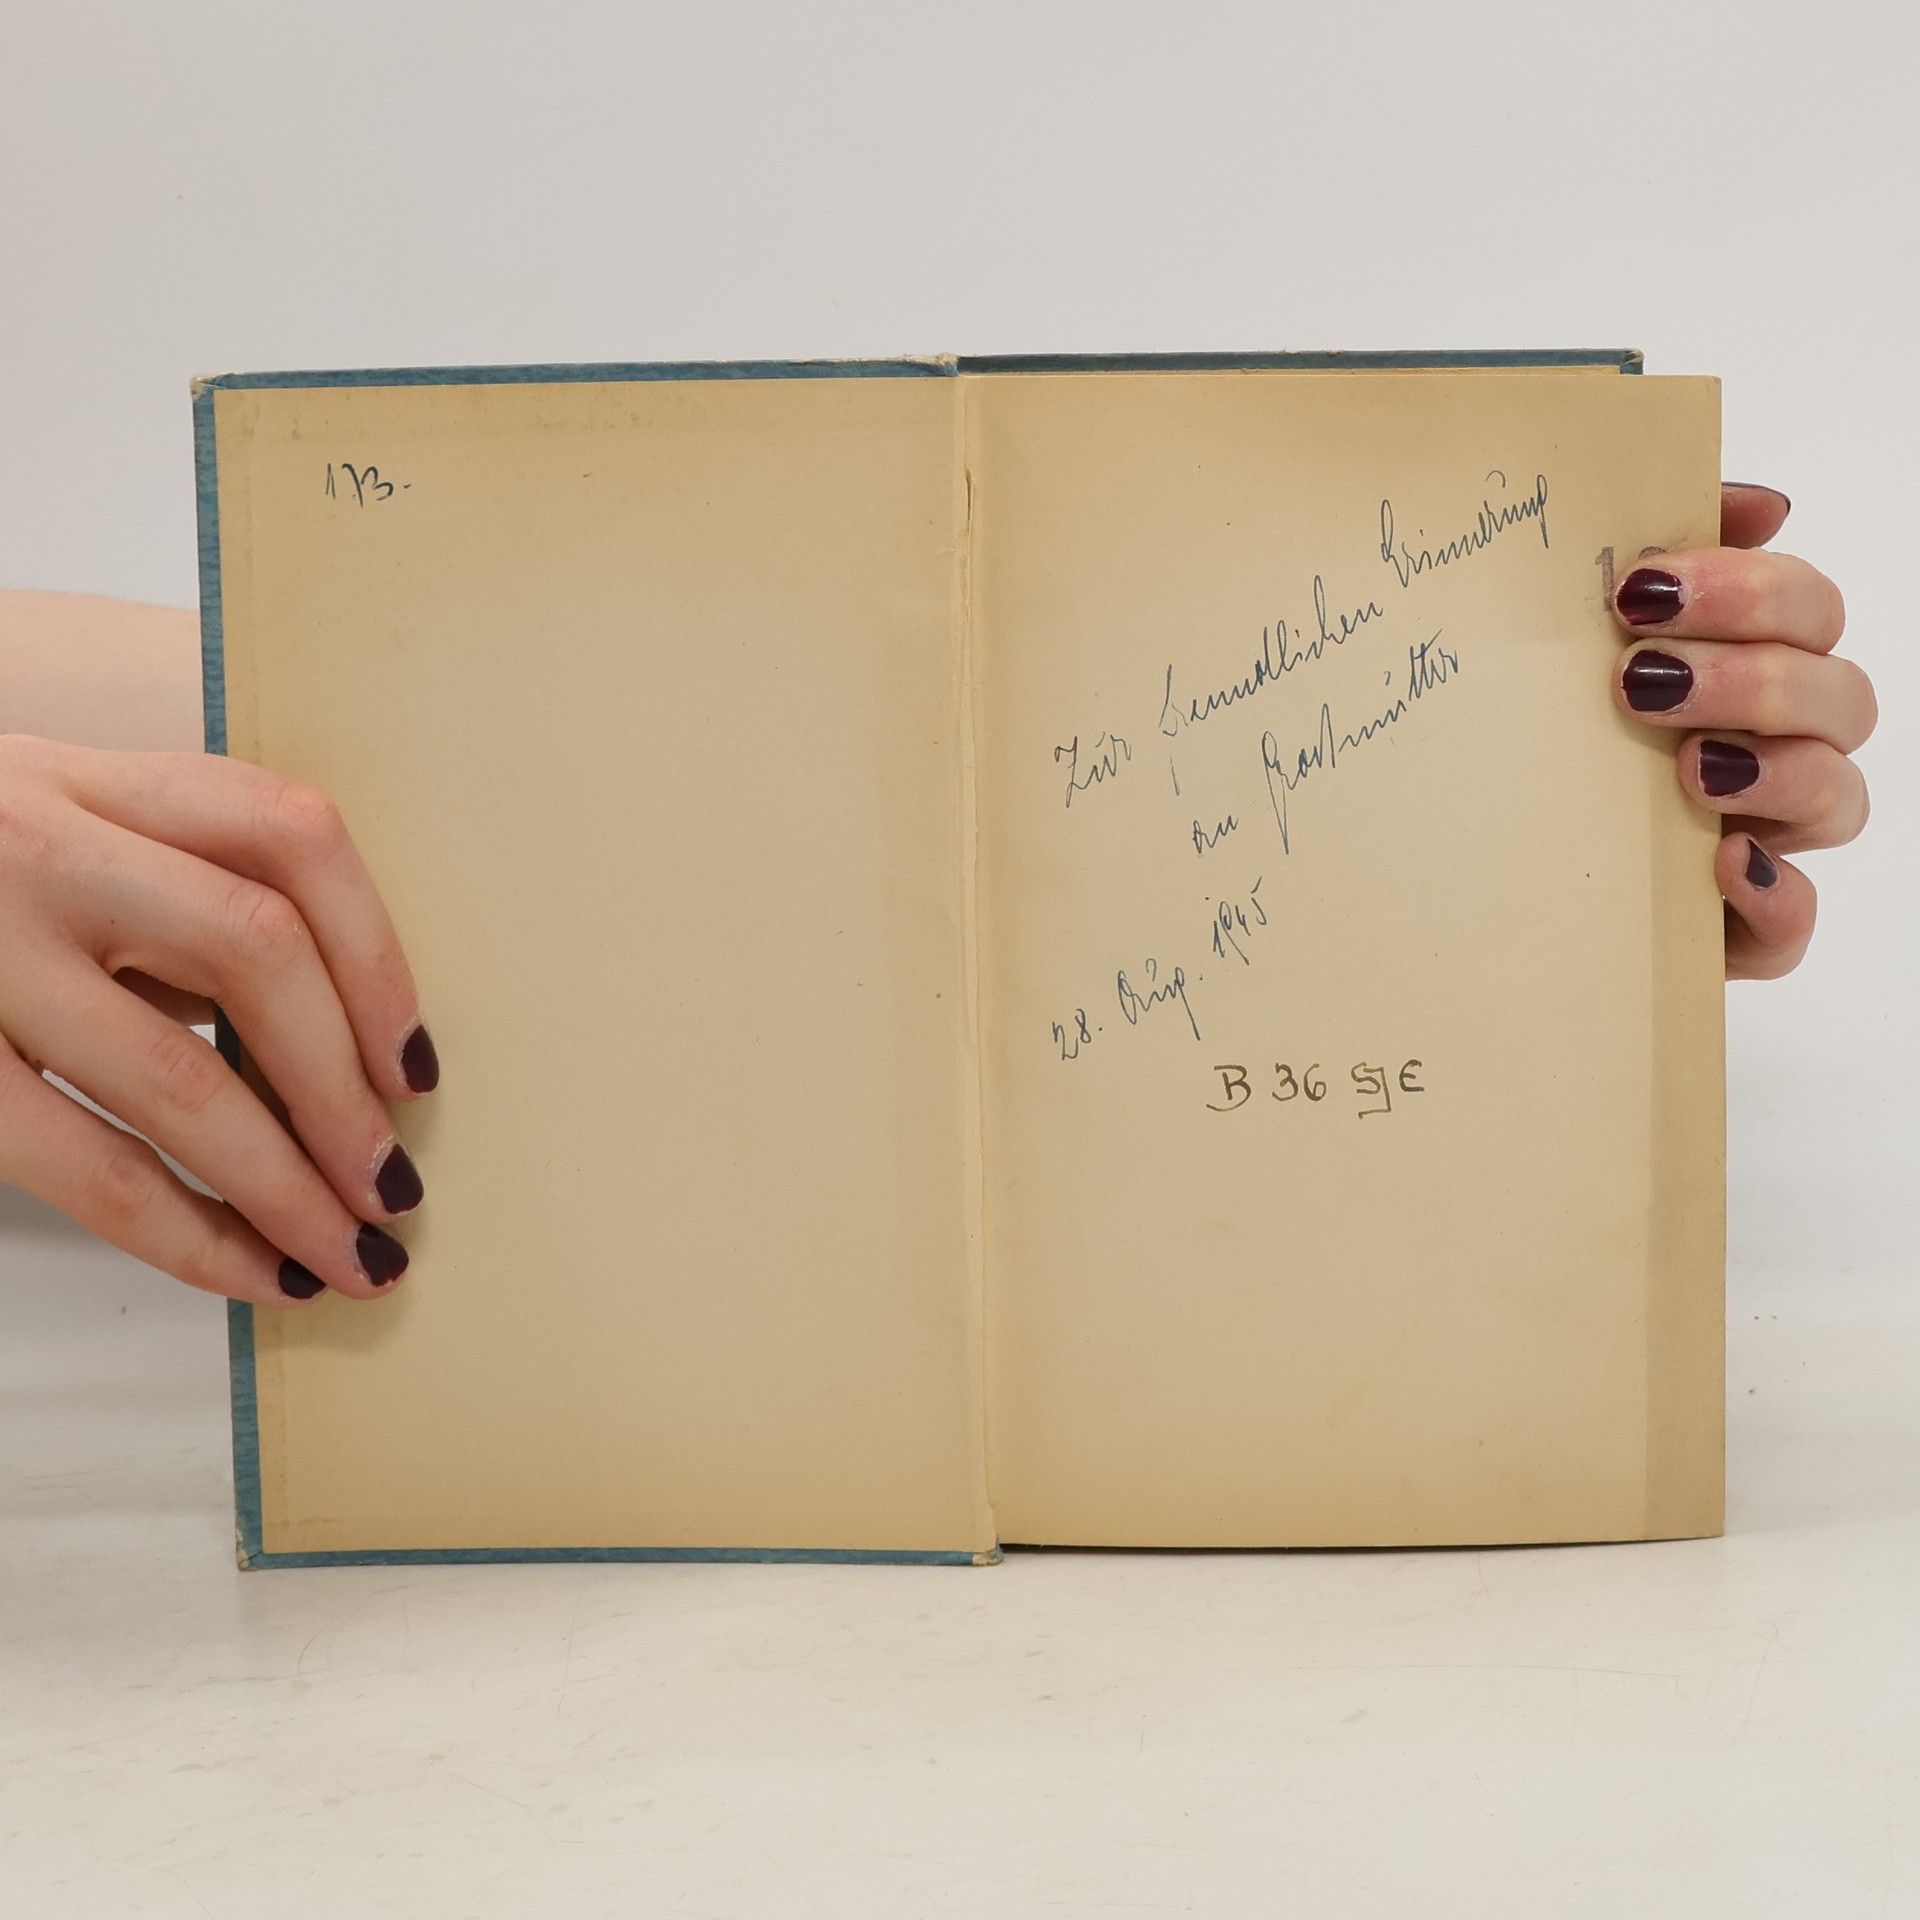 173.
Zur freundlichen Erinnerung
an Grossmutter
28. Aug. 1945
B 36